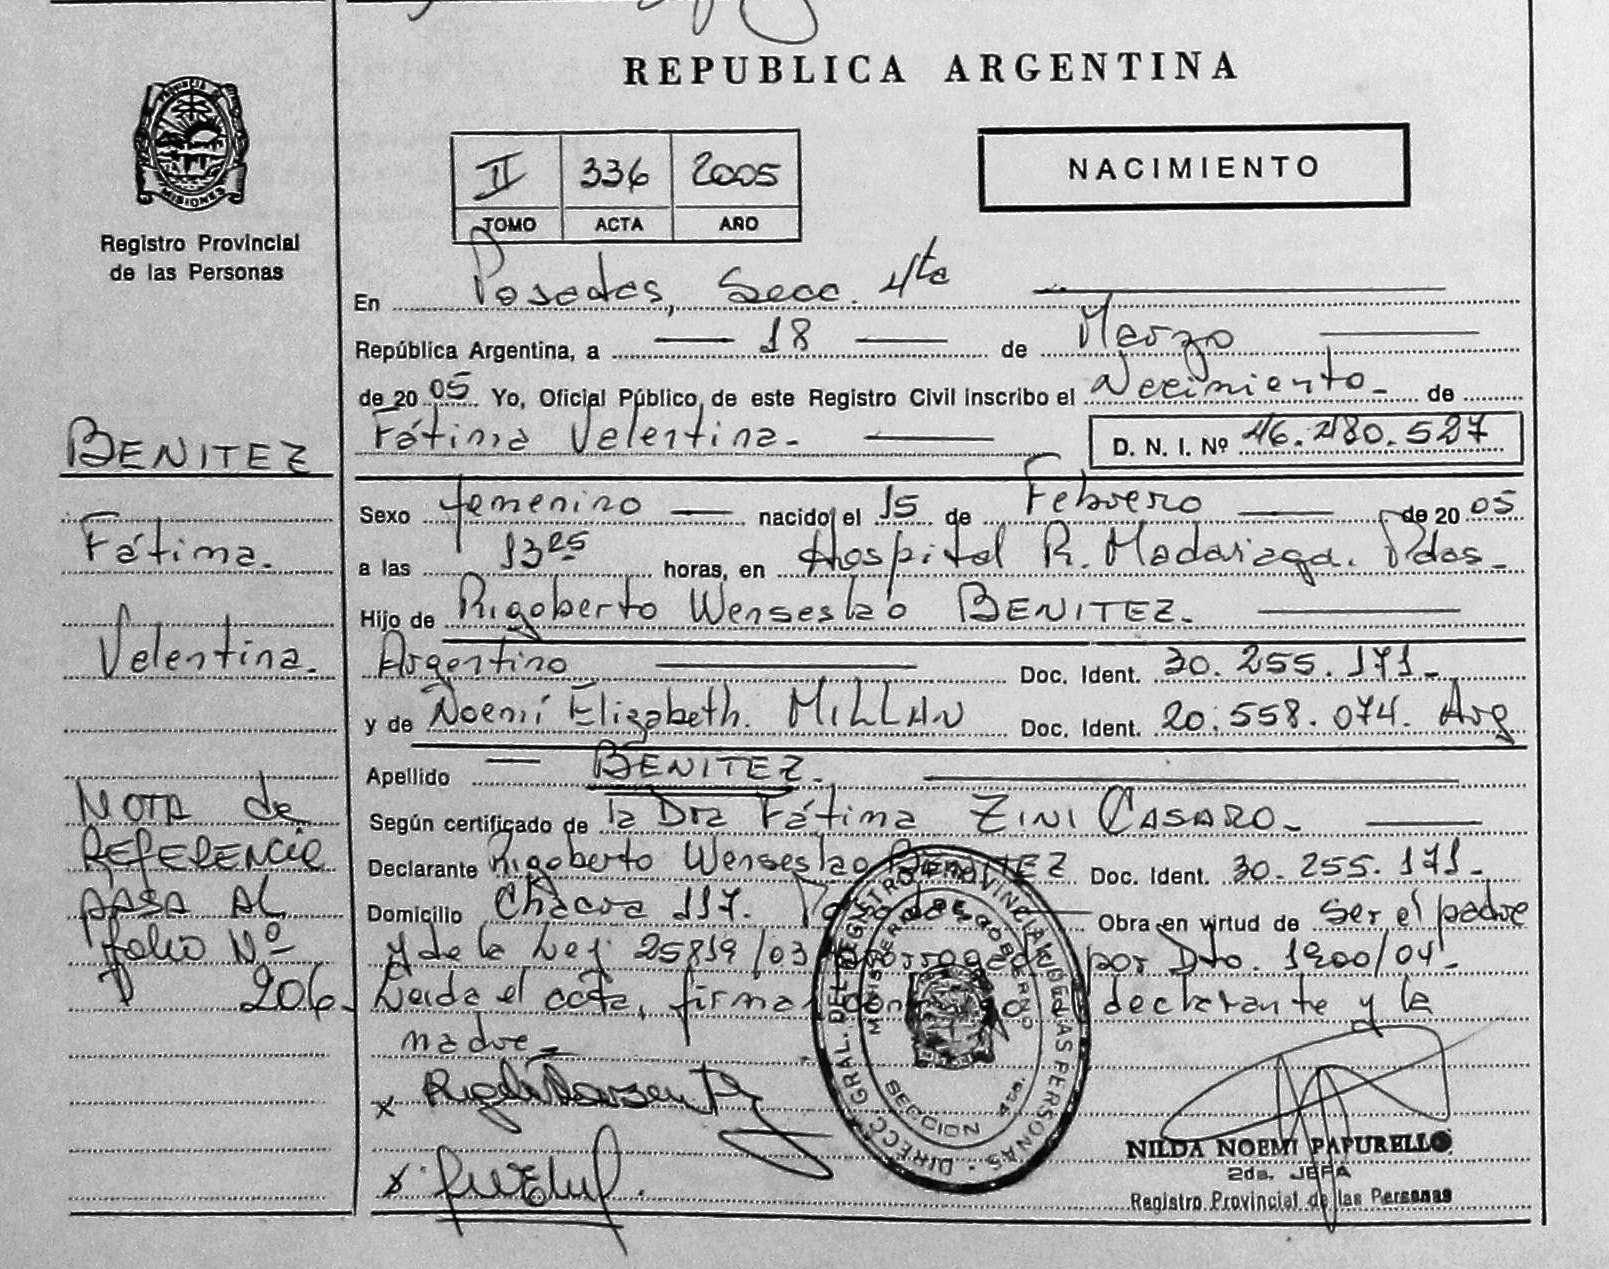 REPUBLICA ARGENTINA
PROVINCIA DE MISIONES
Registro Provincial
de las Personas
II 336 2005
TOMO ACTA AÑO
NACIMIENTO
En Posadas, Secc. 4ta
República Argentina, a 18 de Marzo
de 2005 Yo, Oficial Público de este Registro Civil inscribo el Nacimiento de
Fátima Valentina. D. N. I. Nº 46.480.527
Sexo femenino nacido el 15 de Febrero de 2005
a las 13 25 horas, en Hospital R. Madariaga. Pdas.
Hijo de Rigoberto Wenseslao BENITEZ.
Argentino Doc. Ident. 30.255.171
y de Noemí Elizabeth. MILLAN Doc. Ident. 20.558.074. Arg
Apellido BENITEZ.
Según certificado de la Dra Fátima ZINI CASARO
Declarante Rigoberto Wenseslao BENITEZ Doc. Ident. 30.255.171
Domicilio Chacra 117. Posadas Obra en virtud de Ser el padre
y de la Ley 25819/03 prorrogada por Dto. 1900/04
Leida el acta, firman conmigo el declarante y la
madre
BENITEZ
Fátima.
Valentina.
NOTA de
REFERENCIA
PASA AL
folio Nº
206.
DIRECC. GRAL. DEL REGISTRO PROVINCIAL DE LAS PERSONAS
MINISTERIO DE GOBIERNO
SECCION 4ta.
NILDA NOEMI PAPURELLO
2da. JEFA
Registro Provincial de las Personas